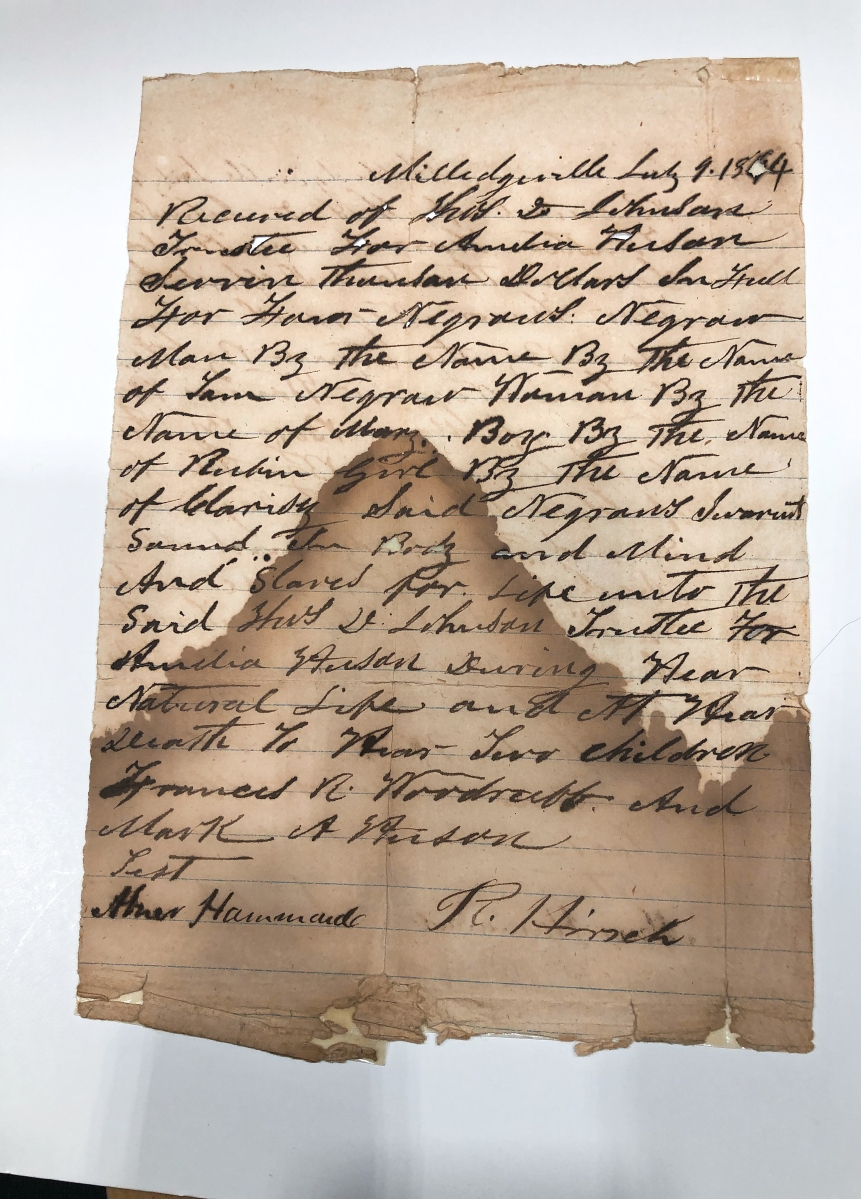 Milledgeville July 9. 1864
Received of Thos. D Johnson
Trustee For Amelia Huson
Sevvin thousan Dollars In Full
For Four Negrows. Negrow
Man By the Name By the Name
of Sam Negrow Woman By the
Name of Mary. Boy By The, Name
of Rubin Girl By The Name
of Clarisy Said Negrows
Sound In Body and Mind
And Slaves for Life unto the
Said Thos D. Johnson Trustee For
Amelia Huson During Hear
Natural Life and At Hear
Death To Hear Two children
Frances R. Woodruff. And
Mark A Huson
Test
Abner Hammond R. Hirsch